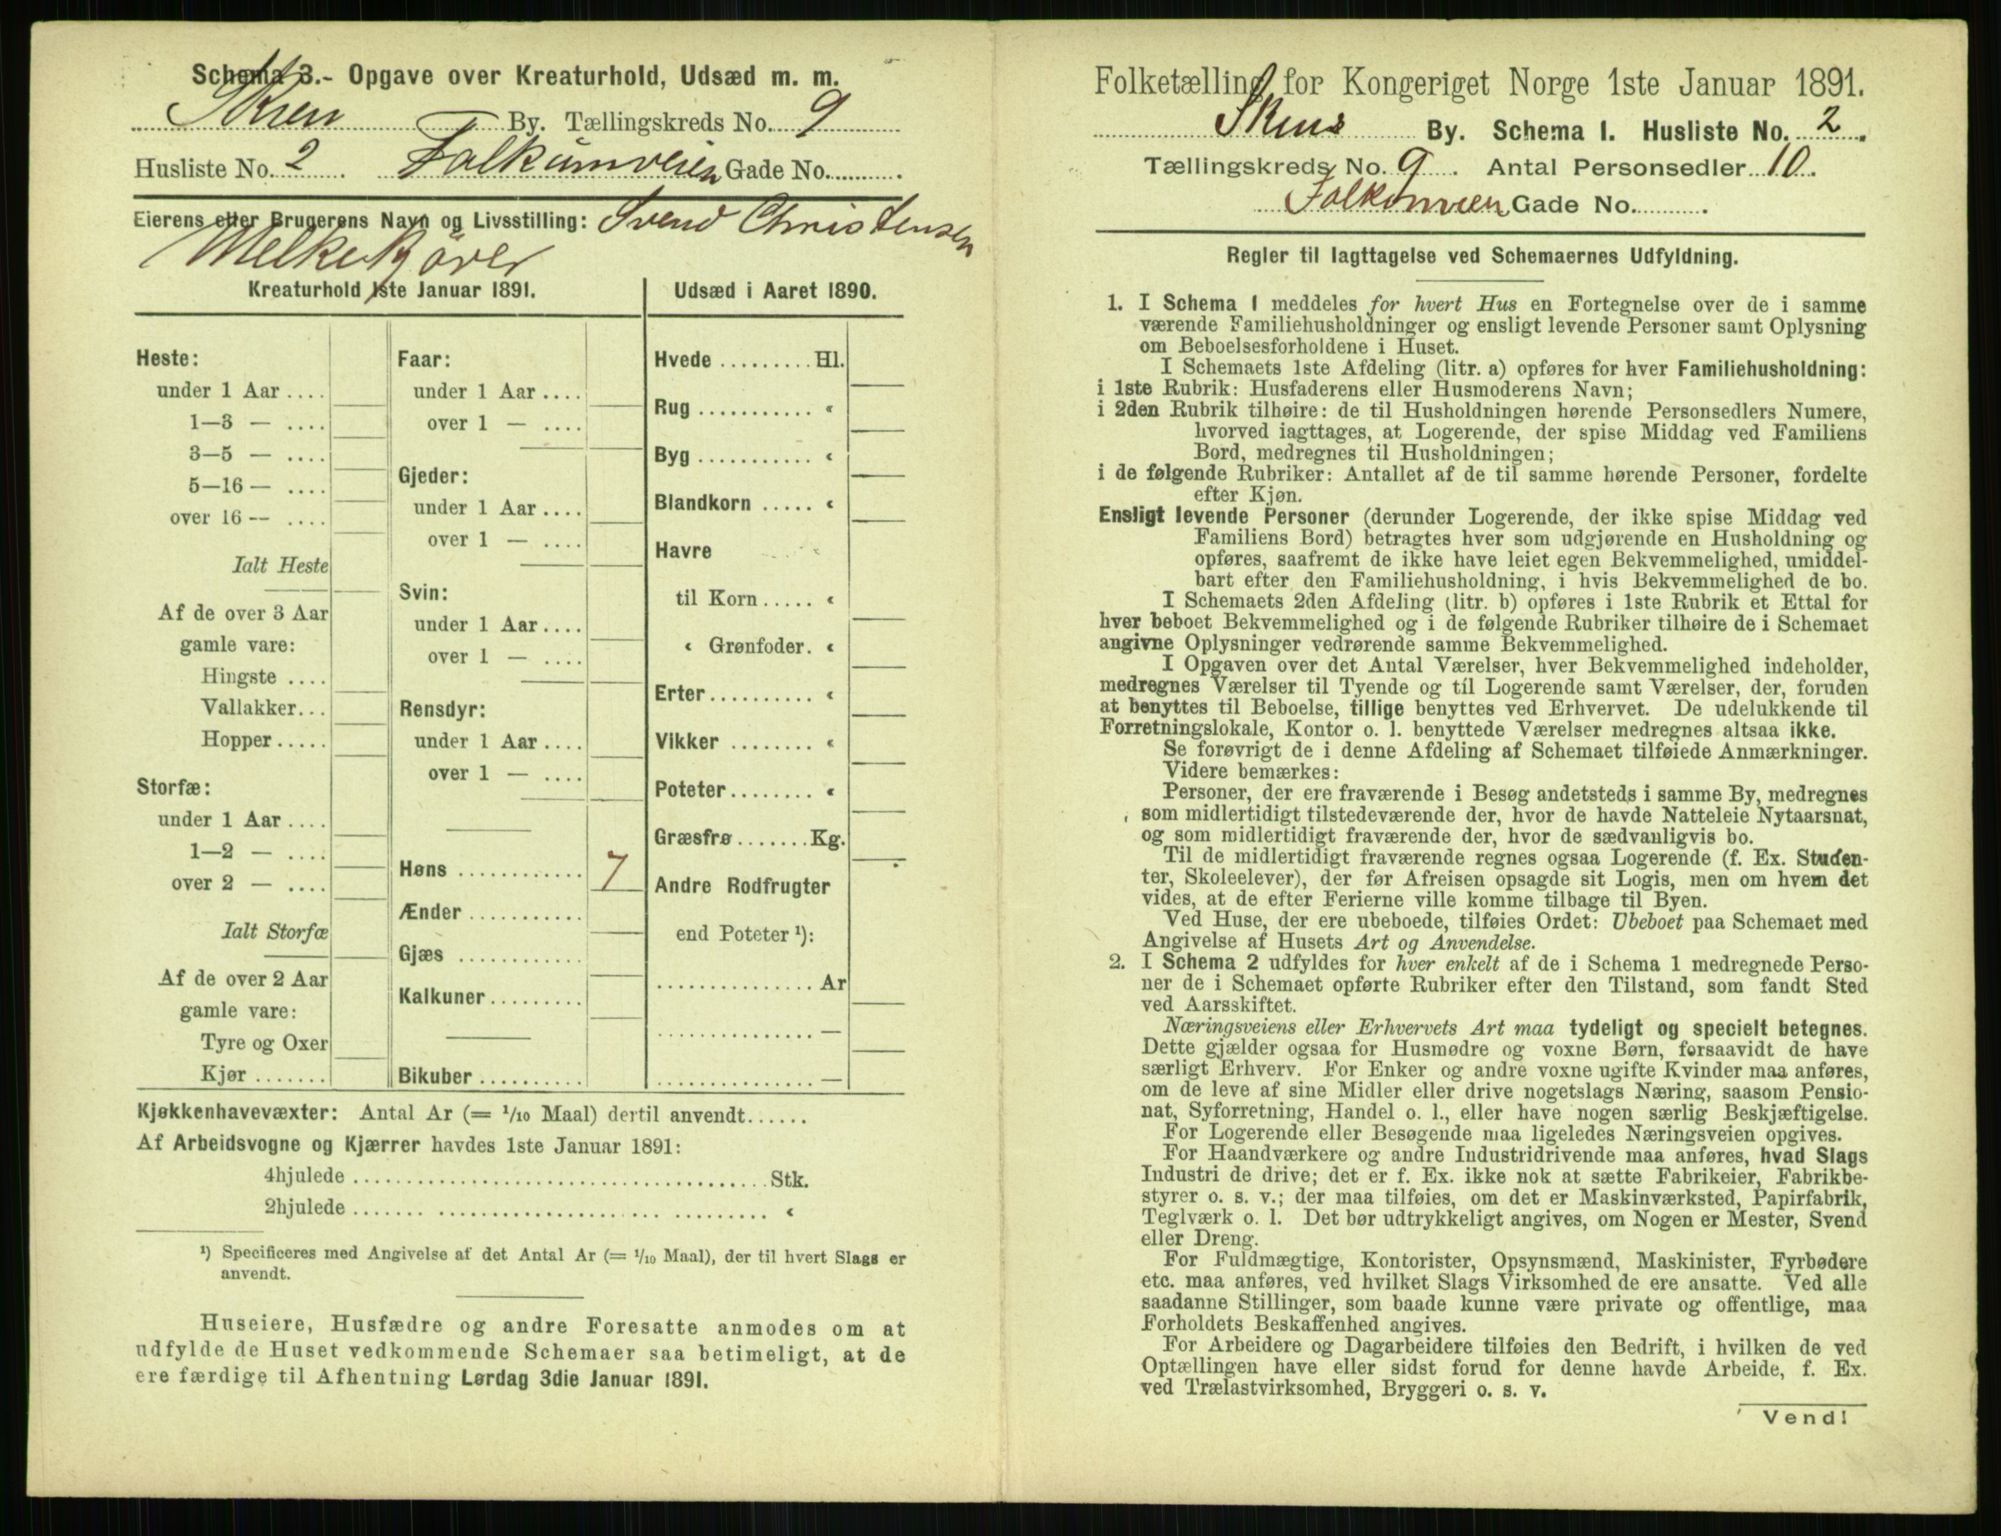 Schema 3. - Opgave over Kreaturhold, Udsæd m. m.
Skien By. Tællingskreds No. 9
Husliste No. 2 Falkumveien Gade No.
Eierens eller Brugerens Navn og Livsstilling: Svend Christensen
Melkekjører
Kreaturhold 1ste Januar 1891.
Heste:
under 1 Aar ....
1—3 — ....
3—5 — ....
5—16 — ....
over 16 — ....
Ialt Heste
Af de over 3 Aar
gamle vare:
Hingste ....
Vallakker...
Hopper .....
Storfæ:
under 1 Aar ....
1—2 — ....
over 2 — ....
Ialt Storfæ
Af de over 2 Aar
gamle vare:
Tyre og Oxer
Kjør .......
Faar:
under 1 Aar ....
over 1 — ....
Gjeder:
under 1 Aar ....
over 1 — ....
Svin:
under 1 Aar ....
over 1 — ....
Rensdyr:
under 1 Aar ....
over 1 — ....
Høns ............ 7
Ænder ...........
Gjæs ............
Kalkuner.........
Bikuber ..........
Udsæd i Aaret 1890.
Hvede ......... Hl.
Rug ........... «
Byg ........... «
Blandkorn ..... «
Havre
til Korn ..... «
« Grønfoder. «
Erter .......... «
Vikker ........ «
Poteter ........ «
Græsfrø ....... Kg.
Andre Rodfrugter
end Poteter ¹):
............... Ar
............... —
............... —
Kjøkkenhavevæxter: Antal Ar (= 1/10 Maal) dertil anvendt......
Af Arbeidsvogne og Kjærrer havdes 1ste Januar 1891:
4hjulede ........................ Stk.
2hjulede ........................ «
¹) Specificeres med Angivelse af det Antal Ar (= 1/10 Maal), der til hvert Slags er
anvendt.
Huseiere, Husfædre og andre Foresatte anmodes om at
udfylde de Huset vedkommende Schemaer saa betimeligt, at de
ere færdige til Afhentning Lørdag 3die Januar 1891.
Folketælling for Kongeriget Norge 1ste Januar 1891.
Skiens By. Schema 1. Husliste No. 2.
Tællingskreds No. 9. Antal Personsedler 10.
Falkumveien Gade No.
Regler til Iagttagelse ved Schemaernes Udfyldning.
1. I Schema 1 meddeles for hvert Hus en Fortegnelse over de i samme
værende Familiehusholdninger og ensligt levende Personer samt Oplysning
om Beboelsesforholdene i Huset.
I Schemaets 1ste Afdeling (litr. a) opføres for hver Familiehusholdning:
i 1ste Rubrik: Husfaderens eller Husmoderens Navn;
i 2den Rubrik tilhøire: de til Husholdningen hørende Personsedlers Numere,
hvorved iagttages, at Logerende, der spise Middag ved Familiens
Bord, medregnes til Husholdningen;
i de følgende Rubriker: Antallet af de til samme hørende Personer, fordelte
efter Kjøn.
Ensligt levende Personer (derunder Logerende, der ikke spise Middag ved
Familiens Bord) betragtes hver som udgjørende en Husholdning og
opføres, saafremt de ikke have leiet egen Bekvemmelighed, umiddel-
bart efter den Familiehusholdning, i hvis Bekvemmelighed de bo.
I Schemaets 2den Afdeling (litr. b) opføres i 1ste Rubrik et Ettal for
hver beboet Bekvemmelighed og i de følgende Rubriker tilhøire de i Schemaet
angivne Oplysninger vedrørende samme Bekvemmelighed.
I Opgaven over det Antal Værelser, hver Bekvemmelighed indeholder,
medregnes Værelser til Tyende og til Logerende samt Værelser, der, foruden
at benyttes til Beboelse, tillige benyttes ved Erhvervet. De udelukkende til
Forretningslokale, Kontor o. l. benyttede Værelser medregnes altsaa ikke.
Se forøvrigt de i denne Afdeling af Schemaet tilføiede Anmærkninger.
Videre bemærkes:
Personer, der ere fraværende i Besøg andetsteds i samme By, medregnes
som midlertidigt tilstedeværende der, hvor de havde Natteleie Nytaarsnat,
og som midlertidigt fraværende der, hvor de sædvanligvis bo.
Til de midlertidigt fraværende regnes ogsaa Logerende (f. Ex. Studen-
ter, Skoleelever), der før Afreisen opsagde sit Logis, men om hvem det
vides, at de efter Ferierne ville komme tilbage til Byen.
Ved Huse, der ere ubeboede, tilføies Ordet: Ubeboet paa Schemaet med
Angivelse af Husets Art og Anvendelse.
2. I Schema 2 udfyldes for hver enkelt af de i Schema 1 medregnede Perso-
ner de i Schemaet opførte Rubriker efter den Tilstand, som fandt Sted
ved Aarsskiftet.
Næringsveiens eller Erhvervets Art maa tydeligt og specielt betegnes.
Dette gjælder ogsaa for Husmødre og voxne Børn, forsaavidt de have
særligt Erhverv. For Enker og andre voxne ugifte Kvinder maa anføres,
om de leve af sine Midler eller drive nogetslags Næring, saasom Pensio-
nat, Syforretning, Handel o. l., eller have nogen særlig Beskjæftigelse.
For Logerende eller Besøgende maa ligeledes Næringsveien opgives.
For Haandværkere og andre Industridrivende maa anføres, hvad Slags
Industri de drive; det er f. Ex. ikke nok at sætte Fabrikeier, Fabrikbe-
styrer o. s. v.; der maa tilføies, om det er Maskinværksted, Papirfabrik,
Teglværk o. l. Det bør udtrykkeligt angives, om Nogen er Mester, Svend
eller Dreng.
For Fuldmægtige, Kontorister, Opsynsmænd, Maskinister, Fyrbødere
etc. maa anføres, ved hvilket Slags Virksomhed de ere ansatte. Ved alle
saadanne Stillinger, som baade kunne være private og offentlige, maa
Forholdets Beskaffenhed angives.
For Arbeidere og Dagarbeidere tilføies den Bedrift, i hvilken de ved
Optællingen have eller sidst forud for denne havde Arbeide, f. Ex.
ved Trælastvirksomhed, Bryggeri o. s. v.
Vend!